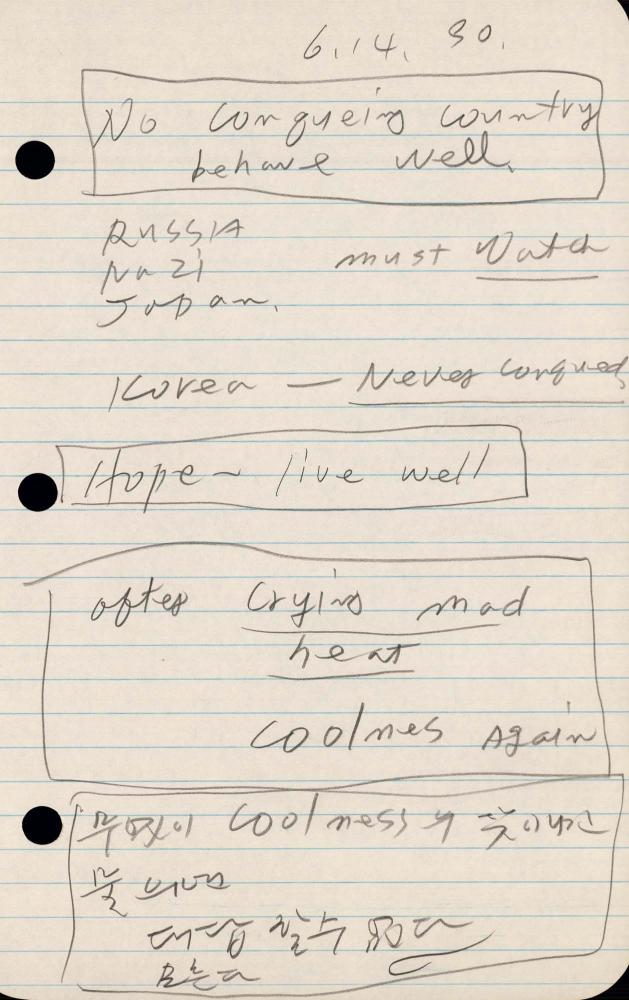 6.14. 80.
No conqueing country
behave well.
RUSSIA
Nazi must Watch
Japan.
Korea — Never conqued
Hope ~ live well
after Crying mad
heat
coolnes Again
coolness
대답 할수 없다
모른다